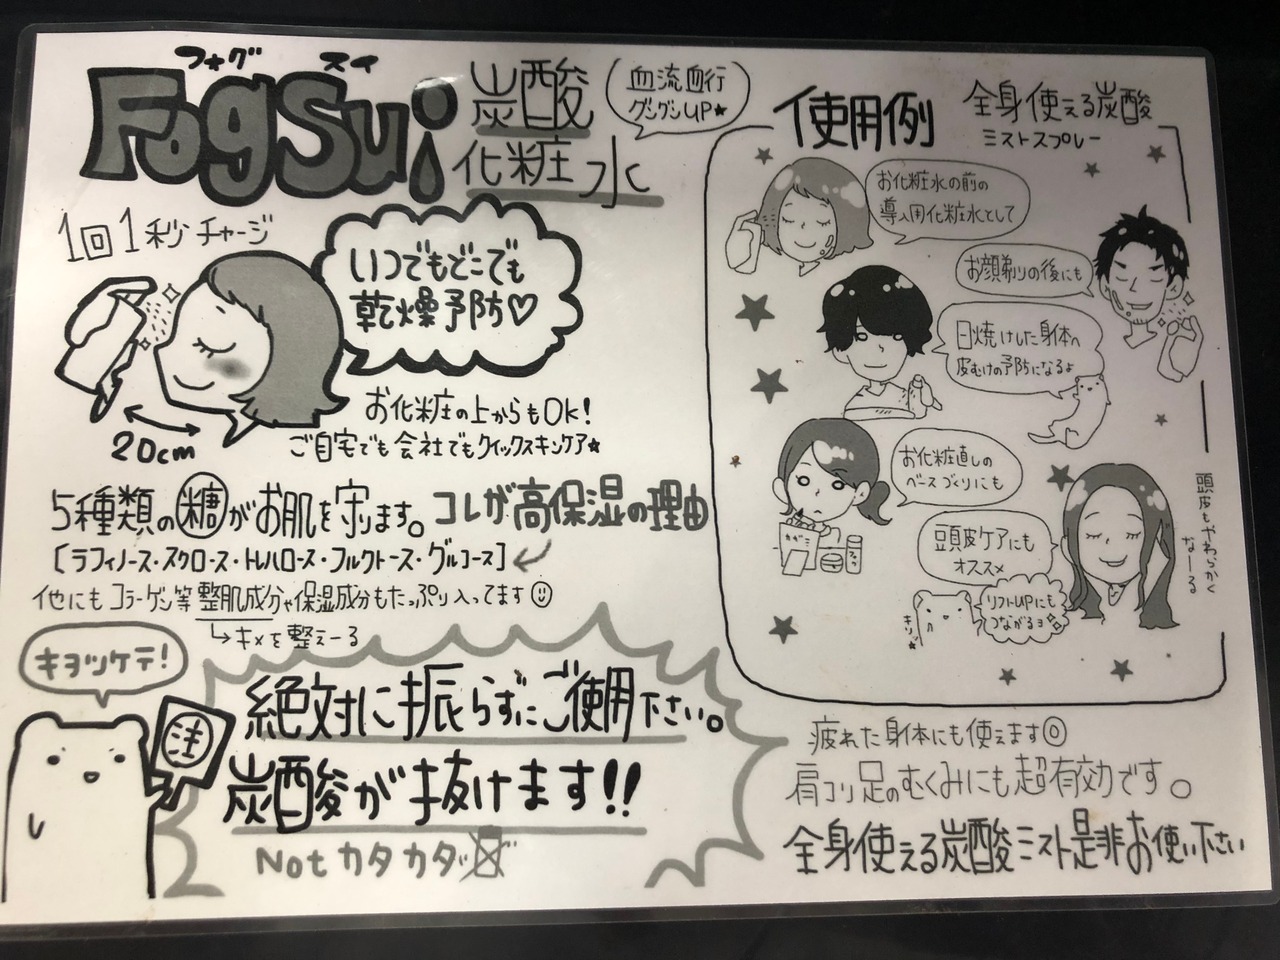 フォグ スイ
FogSui
炭酸
化粧水
血流血行
グングンUP★
1回1秒チャージ
いつでもどこでも
乾燥予防♡
20cm
お化粧の上からもOK!
ご自宅でも会社でもクイックスキンケア★
5種類の糖がお肌を守ります。コレが高保湿の理由
[ラフィノース・スクロース・トレハロース・フルクトース・グルコース]
他にもコラーゲン等整肌成分や保湿成分もたっぷり入ってます
↳キメを整えーる
キヨツケテ!
注
絶対に振らずにご使用下さい。
炭酸が抜けます!!
Notカタカタッ
使用例
全身使える炭酸
ミストスプレー
お化粧水の前の
導入用化粧水として
お顔剃りの後にも
日焼けした身体へ
皮むけの予防になるよ
お化粧直しの
ベースづくりにも
頭皮ケアにも
オススメ
頭皮もやわらかく
なーる
リフトUPにも
つながるヨ
キリッ
疲れた身体にも使えます
肩コリ足のむくみにも超有効です。
全身使える炭酸ミスト是非お使い下さい